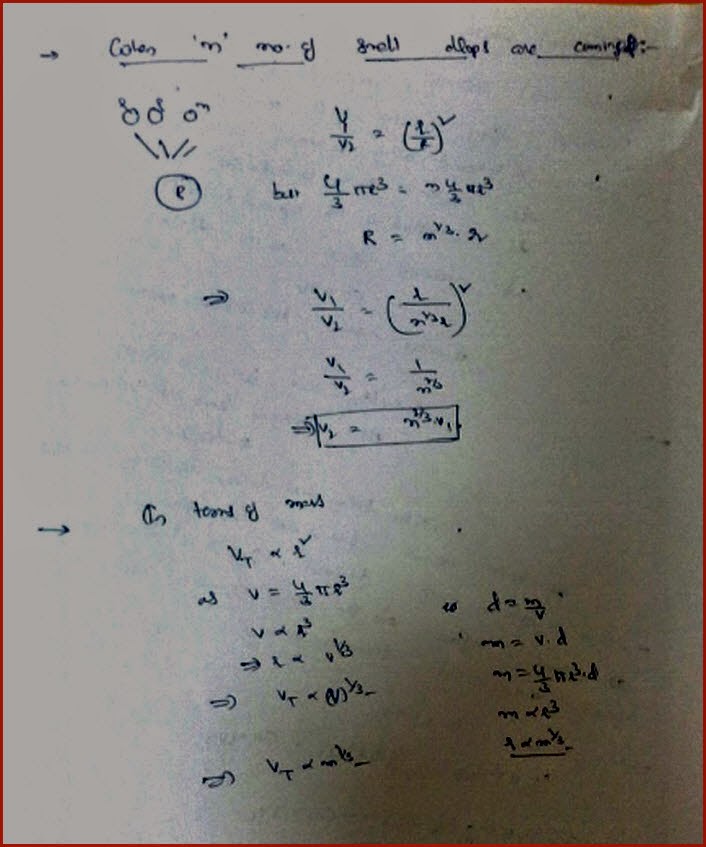 → when 'n' no. of small drops are coming:-
n
R
V₁/V₂ = (r/R)²
but 4/3 πR³ = n 4/3 πr³
R = n^1/3 · r
⇒ V₁/V₂ = (r/n^1/3 r)²
V₁/V₂ = 1/n^2/3
⇒ V₂ = n^2/3 · V₁
→ In terms of mass
V_T ∝ r²
as V = 4/3 πr³
V ∝ r³
⇒ r ∝ V^1/3
⇒ V_T ∝ (V)^2/3
⇒ V_T ∝ m^2/3
as d = m/V
m = V · d
m = 4/3 πr³ · d
m ∝ r³
r ∝ m^1/3